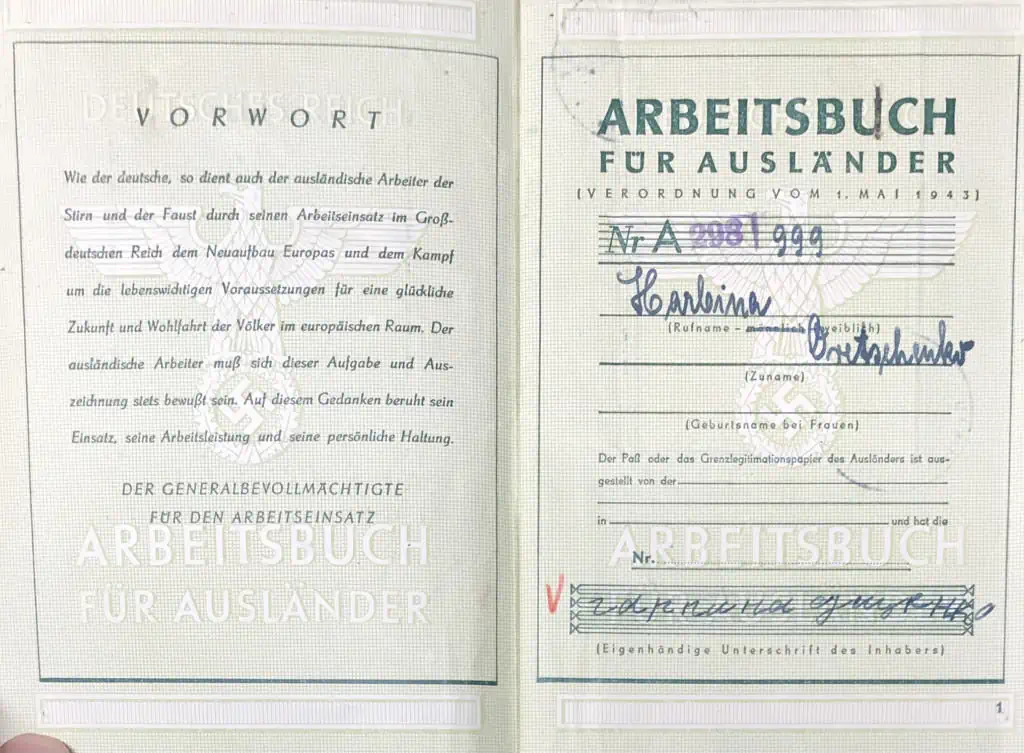 DEUTSCHES REICH
VORWORT
Wie der deutsche, so dient auch der ausländische Arbeiter der
Stirn und der Faust durch seinen Arbeitseinsatz im Groß-
deutschen Reich dem Neuaufbau Europas und dem Kampf
um die lebenswichtigen Voraussetzungen für eine glückliche
Zukunft und Wohlfahrt der Völker im europäischen Raum. Der
ausländische Arbeiter muß sich dieser Aufgabe und Aus-
zeichnung stets bewußt sein. Auf diesem Gedanken beruht sein
Einsatz, seine Arbeitsleistung und seine persönliche Haltung.
DER GENERALBEVOLLMÄCHTIGTE
FÜR DEN ARBEITSEINSATZ
ARBEITSBUCH
FÜR AUSLÄNDER
ARBEITSBUCH
FÜR AUSLÄNDER
(VERORDNUNG VOM 1. MAI 1943)
Nr A 298/999
Harbina
(Rufname - männlich weiblich)
(Zuname)
(Geburtsname bei Frauen)
Der Paß oder das Grenzlegitimationspapier des Ausländers ist aus-
gestellt von der
in und hat die
ARBEITSBUCH
Nr.
V
(Eigenhändige Unterschrift des Inhabers)
1